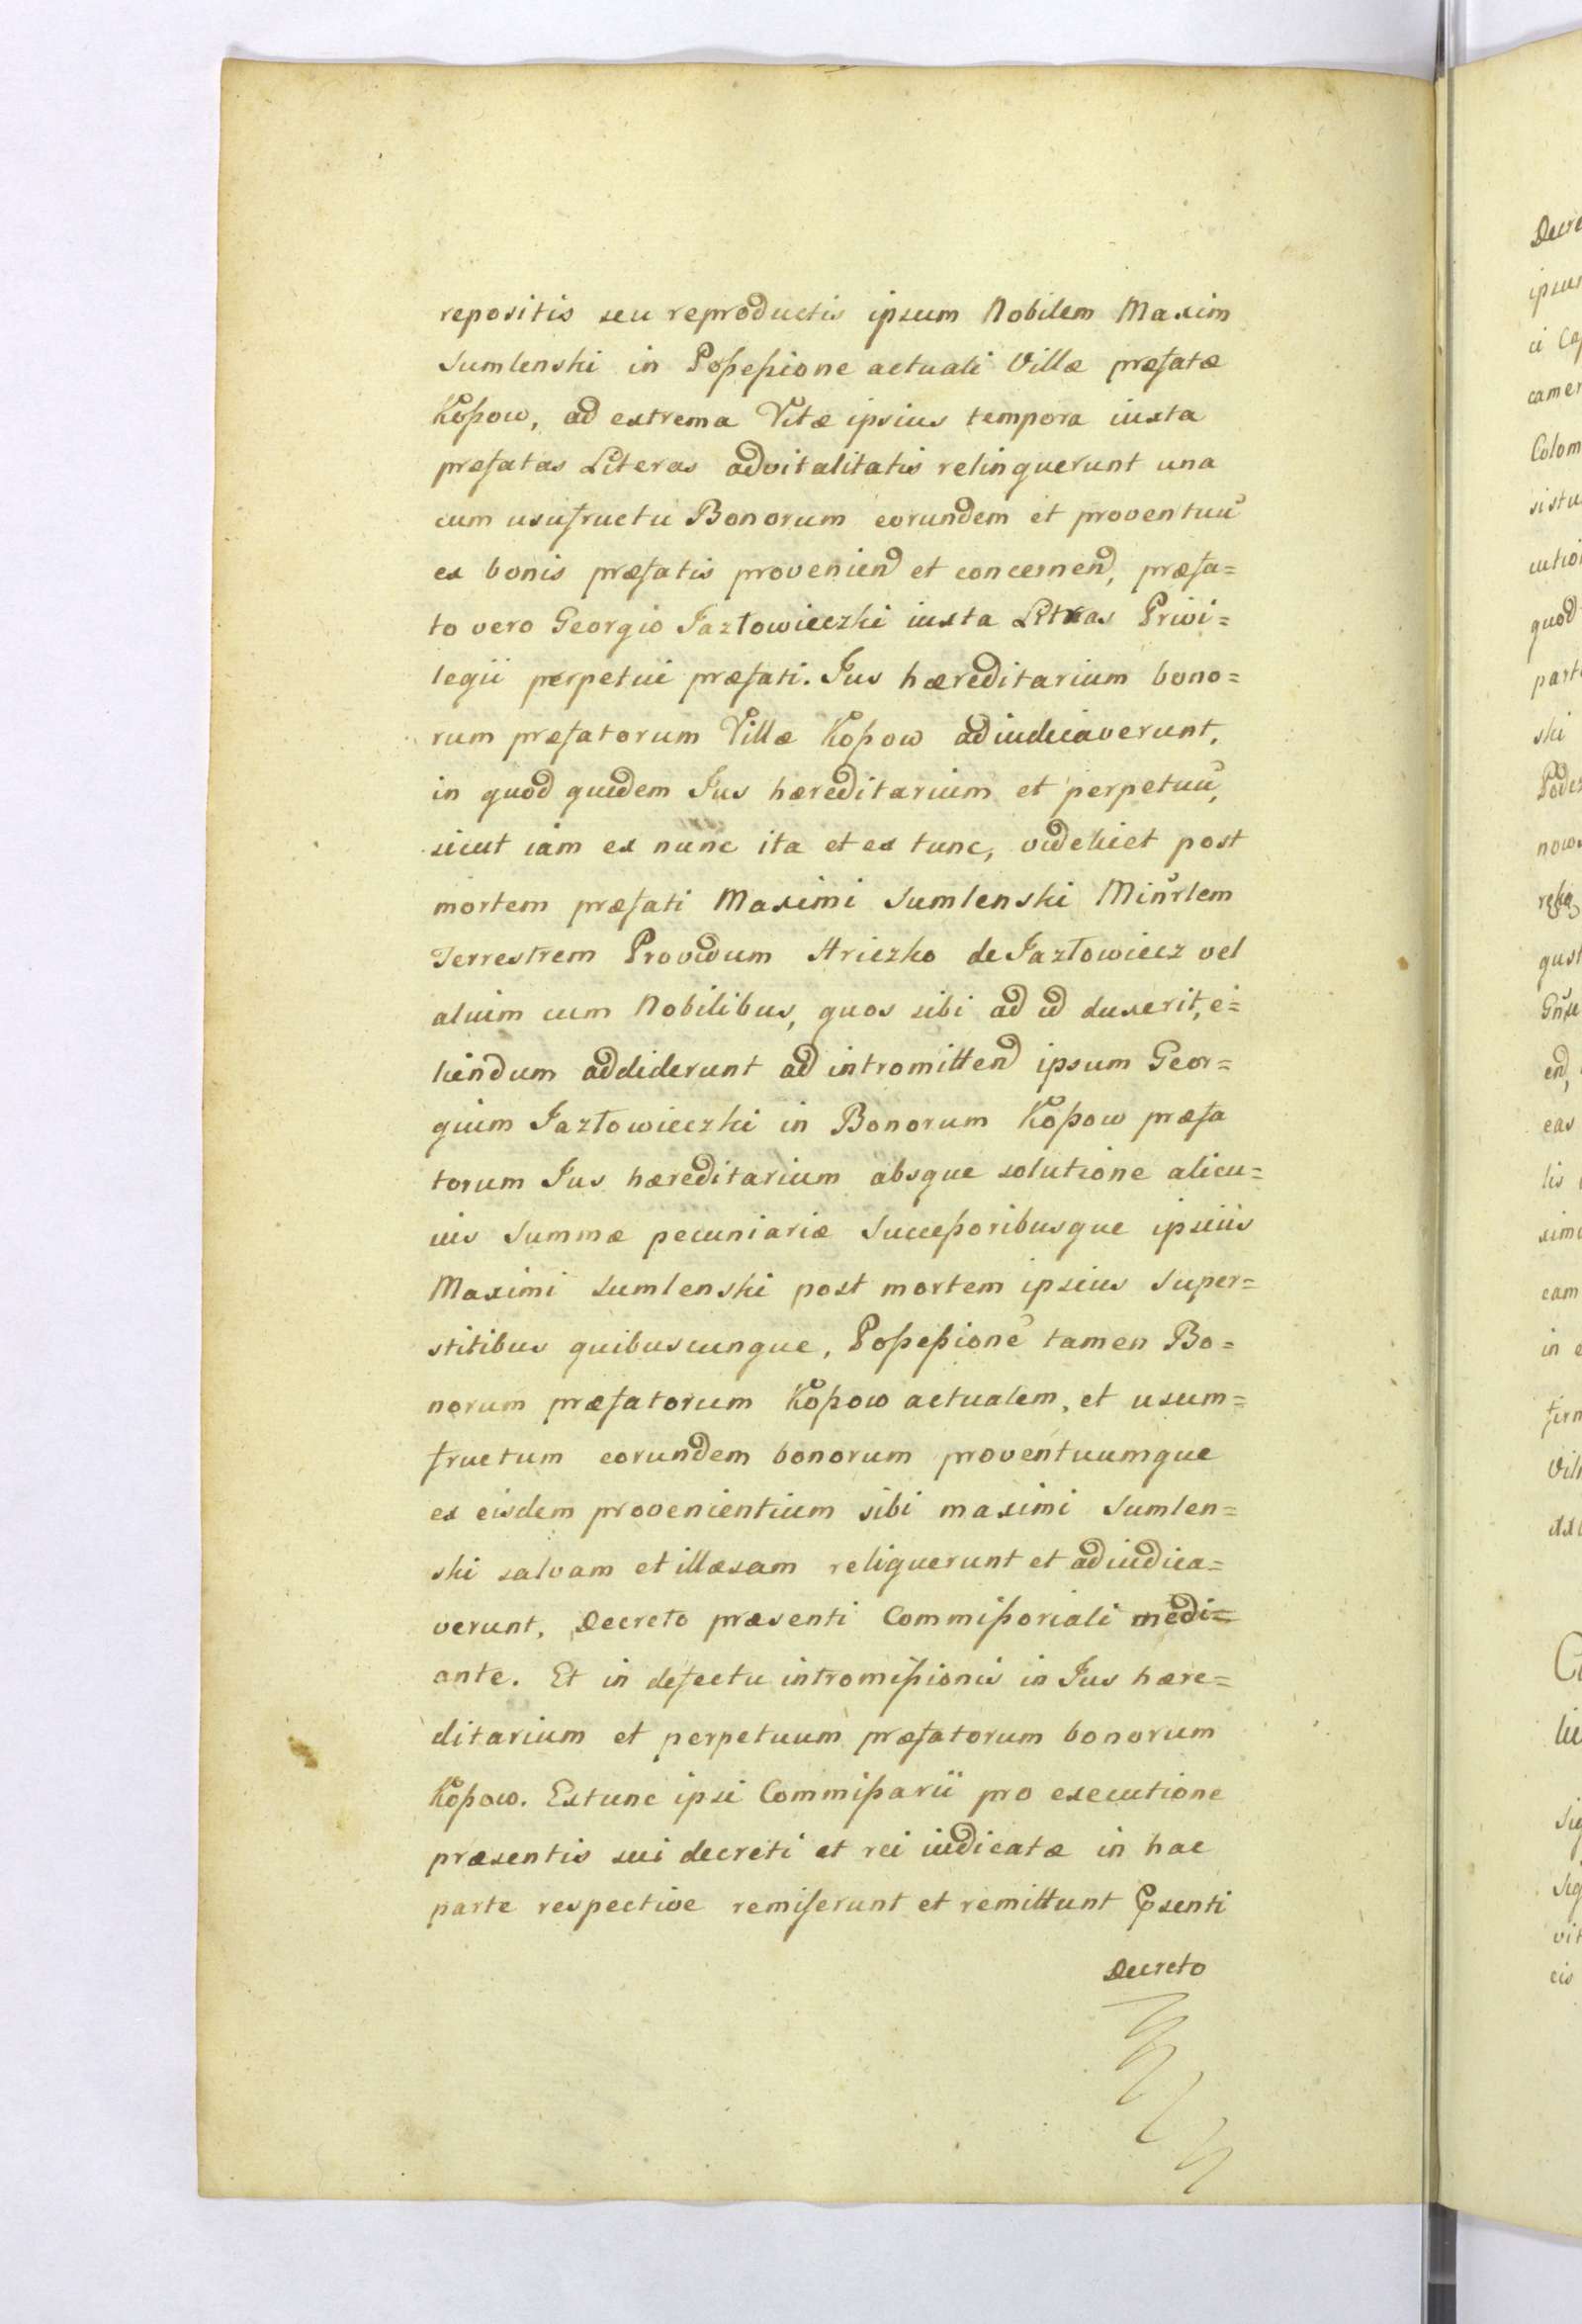 repositis seu reproductis ipsum Nobilem Maxim
Sumlenski in Poſseſsione actuali Villæ præfatæ
Koſsow, ad extrema Vitæ ipsius tempora iuxta
præfatas Literas advitalitatis relinquerunt una
cum usufructu Bonorum eorundem et proventuū
ex bonis præfatis proveniend et concernend, præfa=
to vero Georgio Jazłowieczki iuxta Litras Privi=
legii perpetui præfati. Jus hæreditarium bono=
rum præfatorum Villæ Koſsow adiudicaverunt,
in quod quidem Jus hæreditarium et perpetuū,
sicut iam ex nunc ita et ex tunc, videlicet post
mortem præfati Maximi Sumlenski Minrlem
Terrestrem Providum Hriczko de Jazłowiecz vel
alium cum Nobilibus, quos sibi ad id duxerit, e=
liendum addiderunt ad intromittend ipsum Geor=
gium Jazłowieczki in Bonorum Koſsow præfa
torum Jus hæreditarium absque solutione alicu=
ius Summæ pecuniariæ Succeſsoribusque ipsius
Maximi Sumlenski post mortem ipsius Super=
stitibus quibuscunque, Poſseſsionē tamen Bo=
norum præfatorum Koſsow actualem, et usum=
fructum eorundem bonorum proventuumque
ex eisdem provenientium sibi maximi Sumlen=
ski salvam et illæsam reliquerunt et adiudica=
verunt, Decreto præsenti Commiſsoriali medi=
ante. Et in defectu intromiſsionis in Jus hære=
ditarium et perpetuum præfatorum bonorum
Koſsow. Extunc ipsi Commiſsarii pro executione
præsentis sui decreti et rei iudicatæ in hac
parte respective remiserunt et remittunt Psenti
Decreto